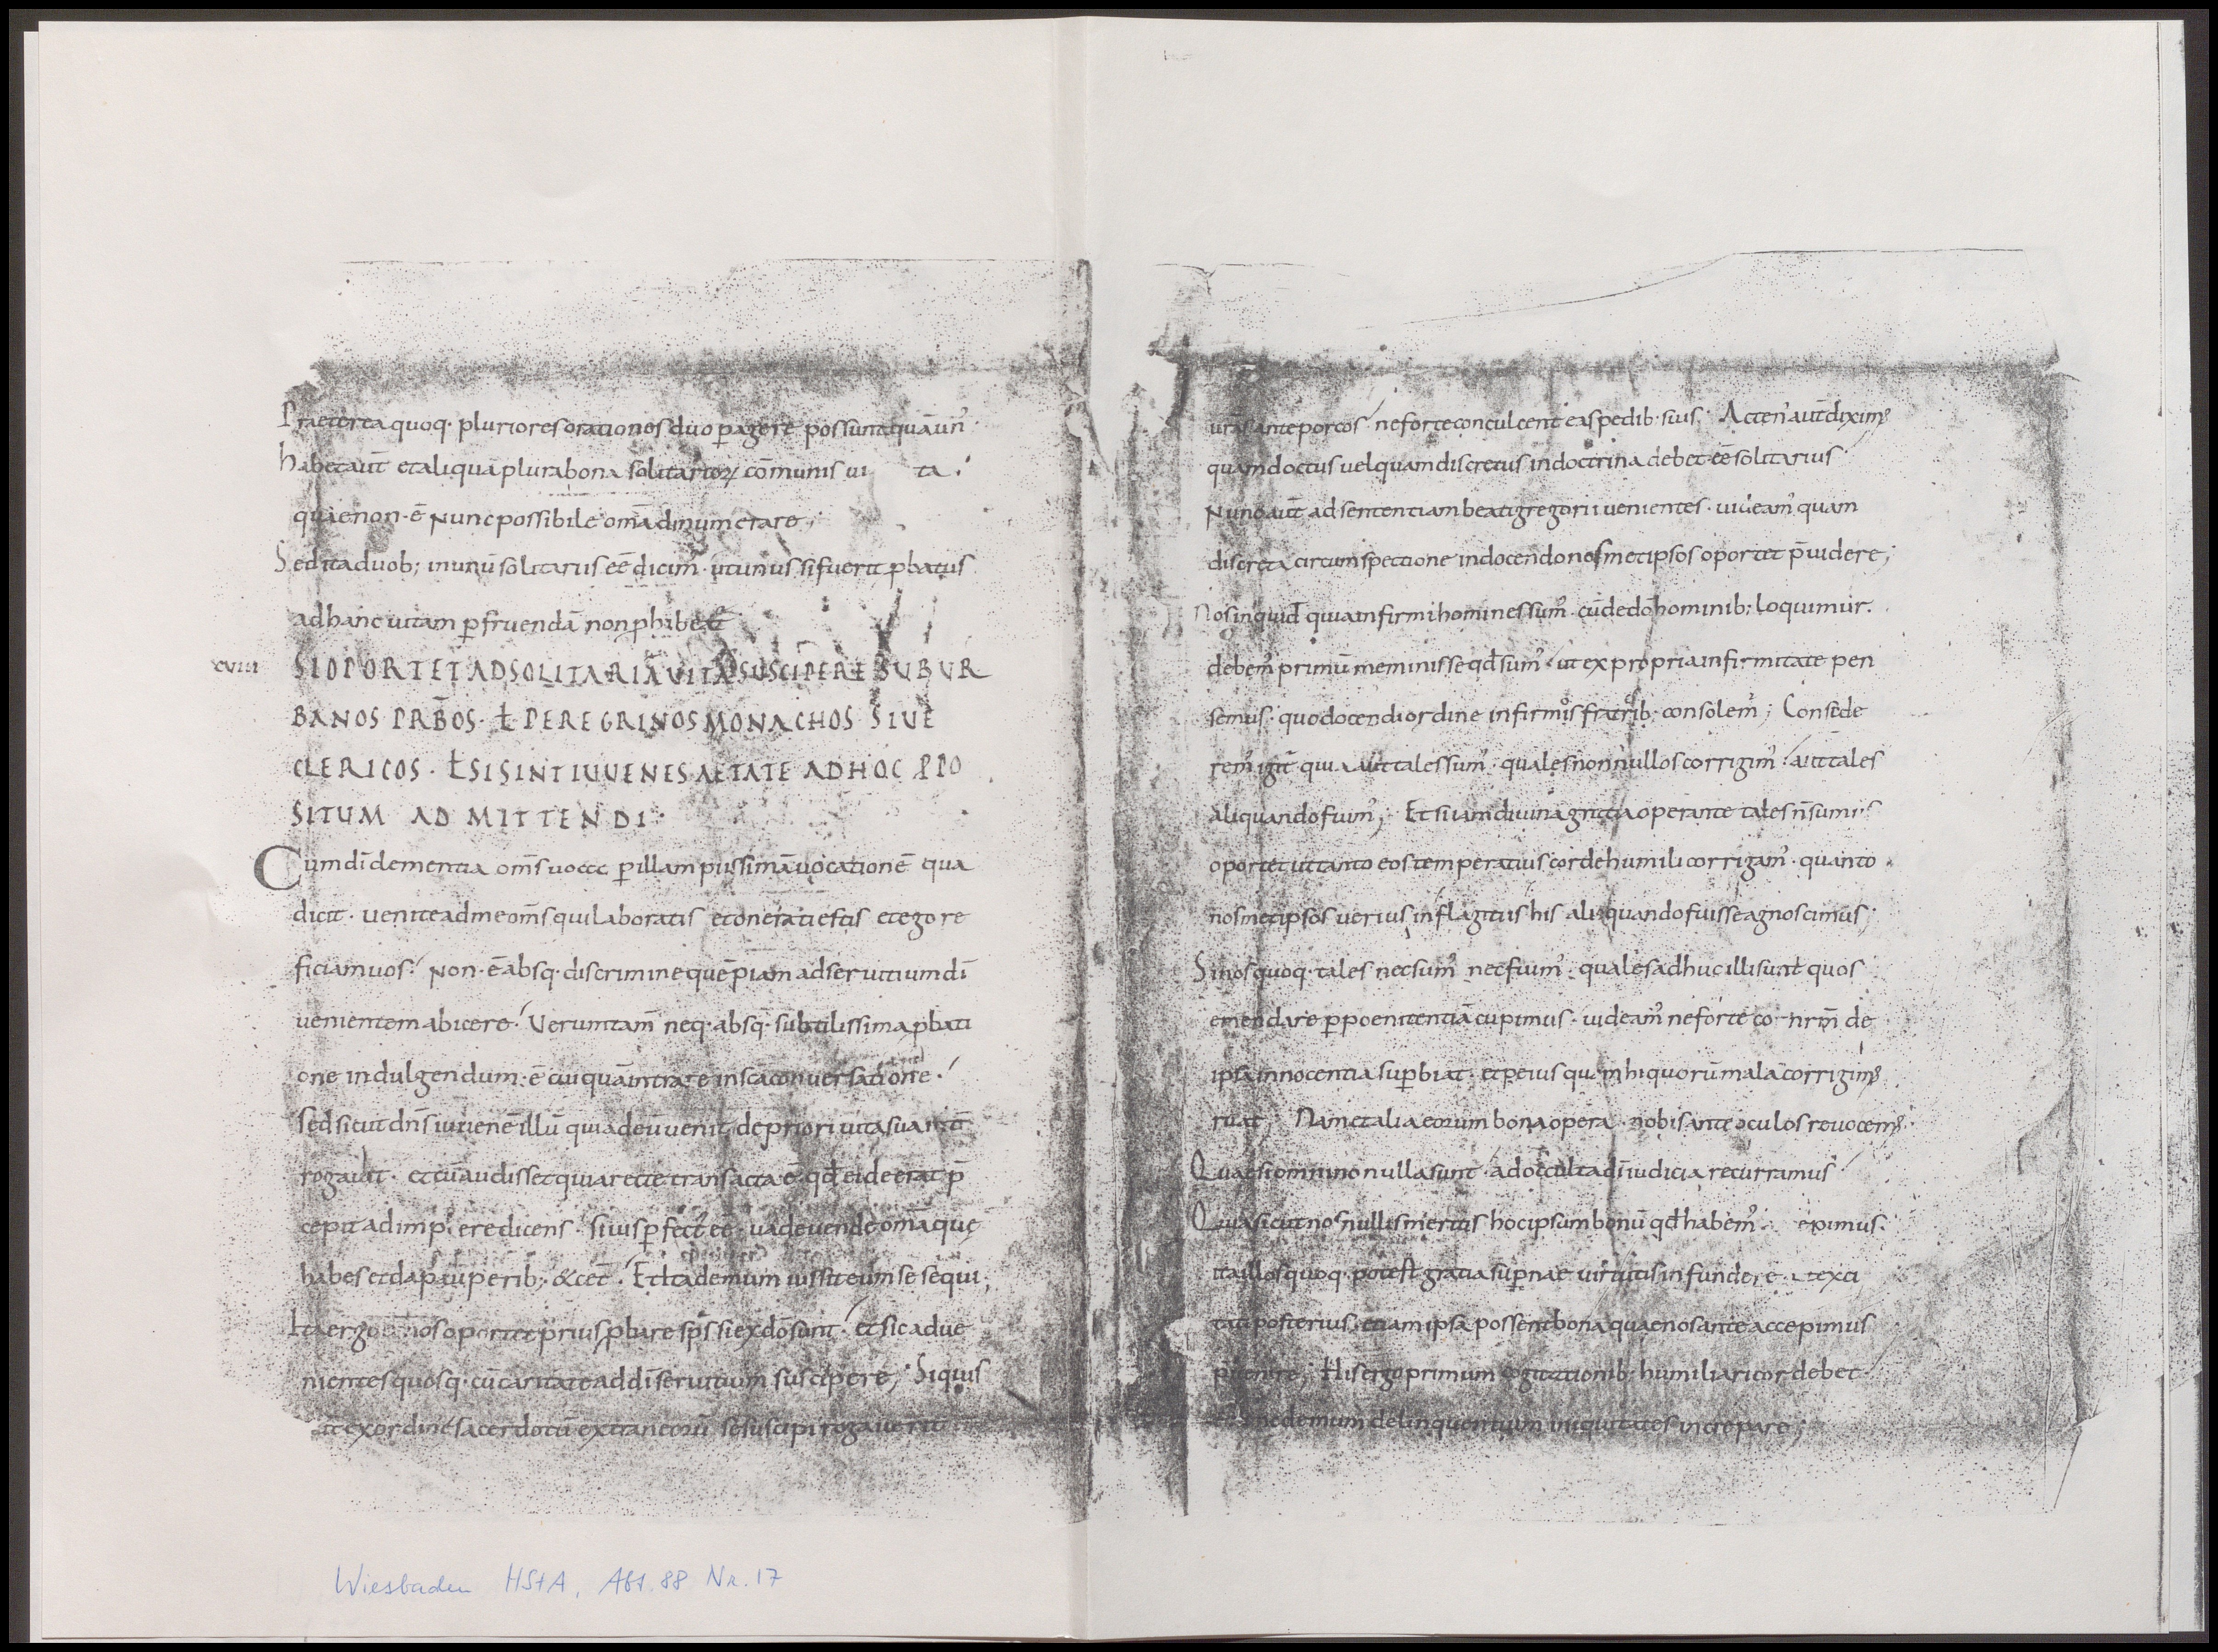 Praeterea quoq· pluriores orationes duo ꝑagere possunt quā un᾿
habet aut̄ et aliqua plura bona solitarioꝝ cōmunis ui ta·
quae non·ē Nunc possibile om̄a dinumerare;
Sed ita duob; in unū solitariis eē dicim᾿· ut unus si fuerit ꝓbatus
ad hanc uitam ꝑfruendā non ꝓhibe
xviii SI OPORTET AD SOLITARIĀ VITĀ SUSCIPERE SUBUR
BANOS PRB̄OS· ł PEREGRINOS MONACHOS SIVE
CLERICOS· ł SI SINT IUVENES AETATE AD HOC PRO
SITUM ADMITTENDI·
Cum dī clementia om̄s uocet ꝑ illam piissimā uocationē qua
dicit· uenite ad me om̄s qui laboratis et onerati estis et ego re
ficiam uos· Non·ē absq· discrimine quēpiam ad seruitium dī
uenientem abicere· Verumtam̄ neq· absq· subtilissima ꝓbati
one indulgendum·ē cuiquā intrare in scā conuersatione·
sed sicut dn̄s iuuenē illū qui ad eū uenit de priori uita sua int̄
rogauit· et cū audisset quia recte transacta ē· qd̄ ei deerat p̄
cepit adimplere dicens· si uis ꝑfect᾿ eē· uade uende om̄a quę
habes et da pauperib; &cet̄· Et ita demum iussit eum se sequi;
Ita ergo et nos oportet prius ꝓbare sps̄ si ex dō sunt· et sic adue
nientes quosq· cū caritate ad dī seruitium suscipere; Siquis
ex ordine sacerdotū extraneorū se suscipi rogauerit
urās ante porcos· ne forte conculcent eas pedib· suis· Acten᾿ aut̄ dixim᾿
quam doctus uel quam discretus in doctrina debet eē solitarius·
Nunc aut̄ ad sententiam beati gregorii uenientes· uideam᾿ quam
discreta circumspectione in docendo nosmetipsos oportet p̄uidere;
Nos inquid quia infirmi homines sum᾿· cū de dō hominib; loquimur·
debem᾿ primū meminisse qd̄ sum᾿· ut ex propria infirmitate pen
semus· quo docendi ordine infirmis fratrib· consolem᾿; Conside
rem᾿ igit̄ quia aut tales sum᾿· quales nonnullos corrigim᾿· aut tales
aliquando fuim᾿; Et si iam diuina gratia operante tales n̄ sum᾿·
oportet ut tanto eos temperatius corde humili corrigam᾿· quanto
nosmetipsos uerius in flagitiis his aliquando fuisse agnoscimus;
Si nos quoq· tales nec sum᾿ nec fuim᾿· quales adhuc illi sunt quos
emendare ꝑ poenitentiā cupimus· uideam᾿ ne forte co nrm̄ de
ipsa innocentia suꝑbiat· et peius quam hi quorū mala corrigim᾿
ruat; Nam et alia eorum bona opera· nobis ante oculos reuocem᾿·
Quae si omnino nulla sunt· ad occulta dī iudicia recurramus·
Quia sicut nos nullis meritis hoc ipsum bonū qd̄ habem᾿ epimus·
ita illos quoq· potest gratia suꝑnae uirtutis infundere· ut exci
tati posterius· etiam ipsa possent bona quae nos ante accepimus
p̄uenire; His ergo primum cogitationib· humiliari cor debet·
demum delinquentium iniquitates increpare;
Wiesbaden HStA, Abt. 88 Nr. 17